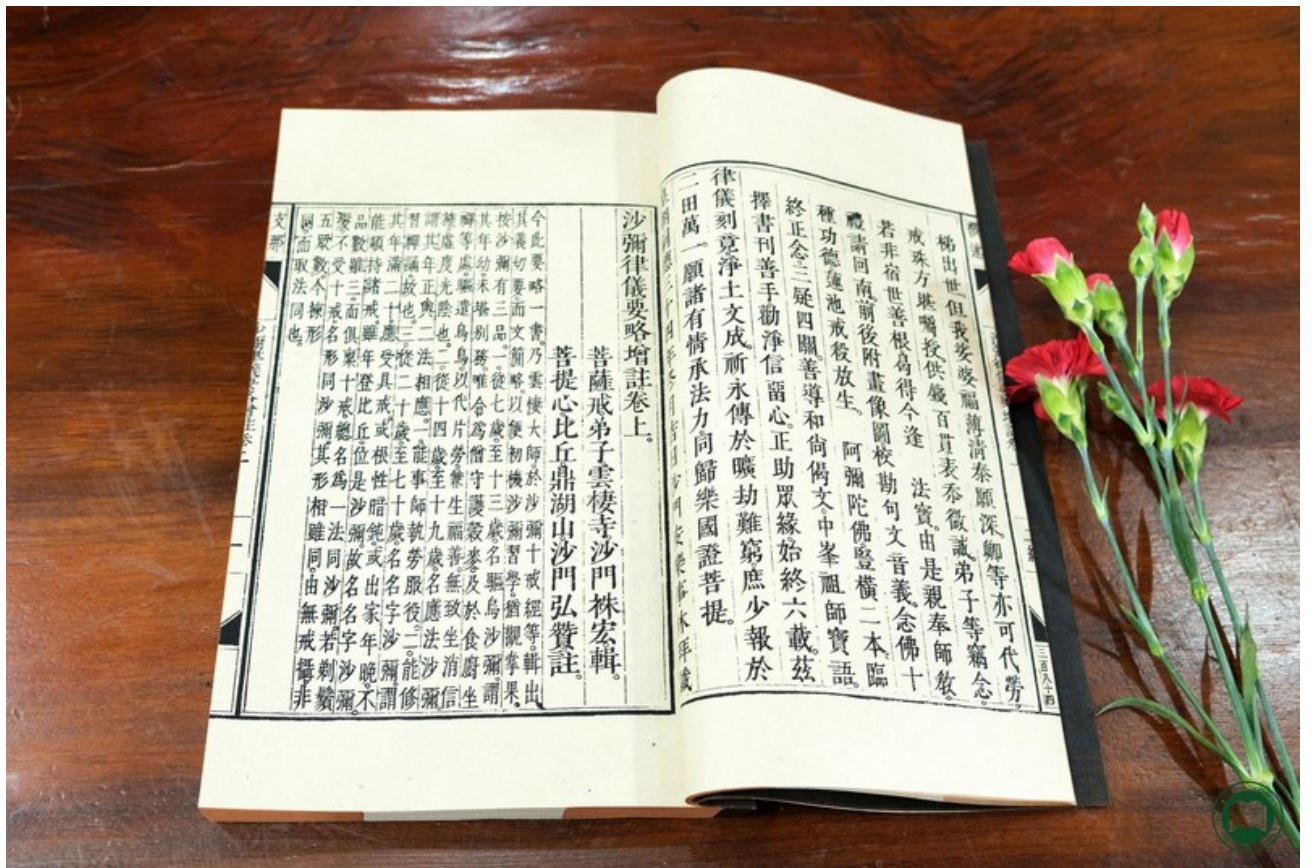 梯出世。但我娑婆福薄。清泰願深。卿等亦可代勞。
戒珠方堪嚼授。供錢百貫。表忝微誠。弟子等竊念。
若非宿世善根。曷得今逢 法寶。由是親奉師教。
禮請回南。前後附畫像圖。校勘句文音義。念佛十
種功德。蓮池戒殺放生。 阿彌陀佛豎橫二本。臨
終正念。三疑四關。善導和尚偈文。中峯祖師寶語。
擇書刊善手。勸淨信畱心。正助眾緣。始終六載。茲
律儀刻竟。淨土文成。祈永傳於曠劫難窮。庶少報於
二田萬一。願諸有情承法力。同歸樂國證菩提。
三百八十四
沙彌律儀要略增註卷上。
菩薩戒弟子雲棲寺沙門袾宏輯。
菩提心比丘鼎湖山沙門弘贊註。
今此要略一書。乃雲棲大師。於沙彌十戒經等。輯出
其義切要。而文簡略。以便初機沙彌習學。猶觀掌果。
按沙彌有三品。一。從七歲。至十三歲。名驅烏沙彌。謂
其年幼。未堪別務。唯令為僧守護穀麥。及於食廚坐
禪等處。驅遣烏鳥。以代片勞。兼生福善。無致坐消信
施。虛度光陰也。二。從十四歲。至十九歲。名應法沙彌。
謂其年正與二法相應。一。能事師執勞服役。二。能修
習禪誦故也。三。從二十歲。至七十歲。名名字沙彌。謂
其年滿二十。應受具戒。或根性暗鈍。或出家年晚。不
能頓持諸戒。雖年登比丘位。是沙彌。故名名字沙彌。
品數雖三。而俱稟十戒。總名為一法同沙彌。若剃髮
不受十戒。名形同沙彌。其形相雖同。由無戒攝。非
五眾數。今揀形
同。而取法同也。
支那